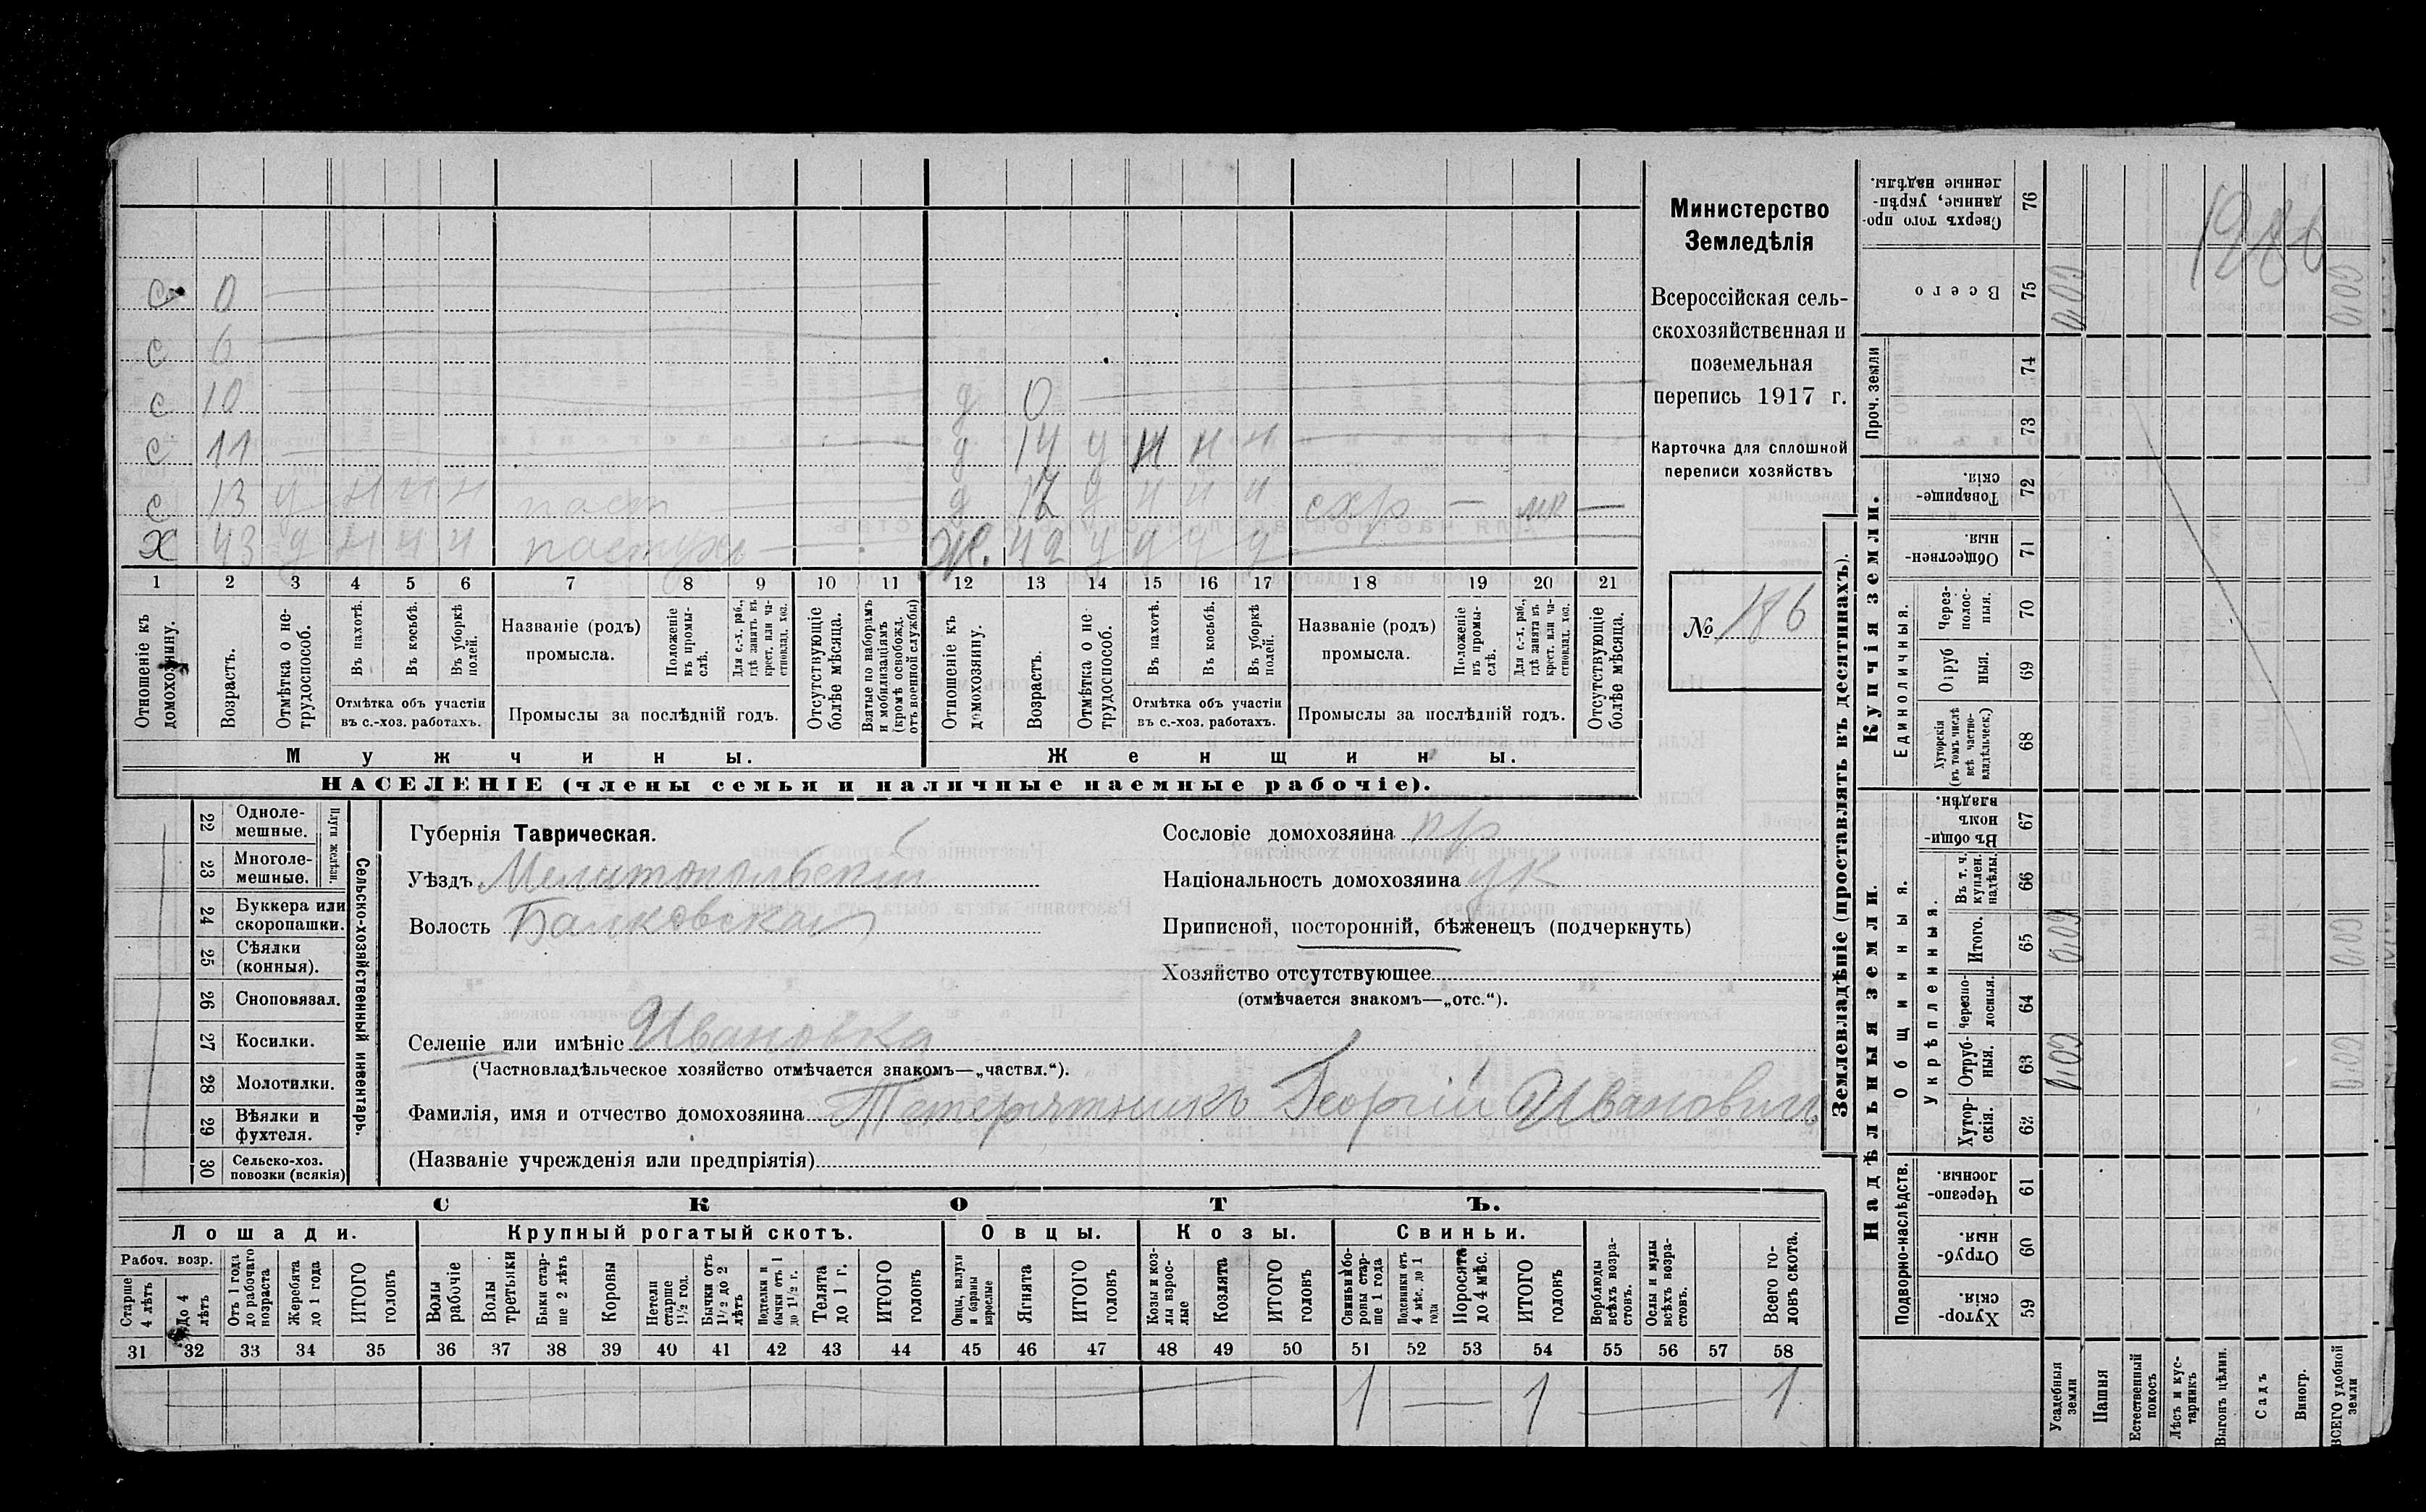 с 0
с 6
с 10 д 0
с 11 д 14 д н н н
с 13 д н н н паст — д 17 д н н н схр — мк —
Х 43 д н н н пастухъ — Ж. 42 д д д д
1 2 3 4 5 6 7 8 9 10 11 12 13 14 15 16 17 18 19 20 21
Отношеніе къ домохозяину.
Возрастъ.
Отмѣтка о нетрудоспособ.
Въ пахотѣ.
Въ косьбѣ.
Въ уборкѣ полей.
Отмѣтка объ участіи
въ с.-хоз. работахъ.
Названіе (родъ)
промысла.
Положеніе въ промыслѣ.
Для с.-х. раб., гдѣ занятъ въ крест. или частновлад. хоз.
Промыслы за послѣдній годъ.
Отсутствующіе болѣе мѣсяца.
Взятые по наборамъ и мобилизаціямъ (кромѣ освобожд. отъ военной службы)
Отношеніе къ домохозяину.
Возрастъ.
Отмѣтка о не трудоспособ.
Въ пахотѣ.
Въ косьбѣ.
Въ уборкѣ полей.
Отмѣтка объ участіи
въ с.-хоз. работахъ.
Названіе (родъ)
промысла.
Положеніе въ промыслѣ.
Для с.-х. раб., гдѣ занята въ крест. или частновлад. хоз.
Промыслы за послѣдній годъ.
Отсутствующіе болѣе мѣсяца.
Мужчины.
Женщины.
НАСЕЛЕНІЕ (члены семьи и наличные наемные рабочіе).
Министерство
Земледѣлія
Всероссійская сель-
скохозяйственная и
поземельная
перепись 1917 г.
Карточка для сплошной
переписи хозяйствъ
№ 186
22 Одноле-
мешные.
23 Многоле-
мешные.
Плуги желѣзн.
24 Буккера или
скоропашки.
25 Сѣялки
(конныя).
26 Сноповязал.
27 Косилки.
28 Молотилки.
29 Вѣялки и
фухтеля.
30 Сельско-хоз.
повозки (всякія)
Сельско-хозяйственный инвентарь.
Губернія Таврическая.
Уѣздъ Мелитопольскій
Волость Балковская
Селеніе или имѣніе Ивановка
(Частновладѣльческое хозяйство отмѣчается знакомъ—„частвл.“).
Фамилія, имя и отчество домохозяина Тетерятникъ Георгій Ивановичъ
(Названіе учрежденія или предпріятія)
Сословіе домохозяина пр
Національность домохозяина ук
Приписной, посторонній, бѣженецъ (подчеркнуть)
Хозяйство отсутствующее
(отмѣчается знакомъ—„отс.“).
СКОТЪ.
Лошади. Крупный рогатый скотъ. Овцы. Козы. Свиньи.
Рабоч. возр.
Старше 4 лѣтъ
До 4 лѣтъ
Отъ 1 года до рабочаго возраста
Жеребята до 1 года
ИТОГО головъ
Волы рабочіе
Волы третьяки
Быки старше 2 лѣтъ
Коровы
Нетели старше 1½ год.
Бычки отъ 1½ до 2 лѣтъ
Подтелки и бычки отъ 1 до 1½ г.
Телята до 1 г.
ИТОГО головъ
Овцы, валухи и бараны взрослые
Ягнята
ИТОГО головъ
Козы и козлы взрослые
Козлята
ИТОГО головъ
Свиньи и боровы старше 1 года
Подсвинки отъ 4 мѣс. до 1 года
Поросята до 4 мѣс.
ИТОГО головъ
Верблюды всѣхъ возрастовъ.
Ослы и мулы всѣхъ возрастовъ.
Всего головъ скота.
31 32 33 34 35 36 37 38 39 40 41 42 43 44 45 46 47 48 49 50 51 52 53 54 55 56 57 58
1 — 1 — 1
Землевладѣніе (проставлять въ десятинахъ).
Сверхъ того проданные, укрѣпленные надѣлы. 76
Всего 75 0,09 0,09
Проч. земли 74
73
Купчія земли.
Товарищескія. 72
Общественныя. 71
Единоличныя.
Черезполосныя. 70
Отрубныя. 69
Хуторскія (въ томъ числѣ всѣ частновладѣльческ.) 68
Надѣльныя земли.
Общинныя.
Въ общинномъ владѣн. 67
Укрѣпленныя.
Въ т. ч. куплен. надѣлы. 66
Итого. 65 0,09 0,09
Черезполосныя. 64
Отрубныя. 63 0,09 0,09
Хуторскія. 62
Подворно-наслѣдств.
Черезполосныя. 61
Отрубныя. 60
Хуторскія. 59
Усадебныя земли
Пашня
Естественный покосъ
Лѣсъ и кустарникъ
Выгонъ цѣлин.
Садъ
Виногр.
ВСЕГО удобной земли